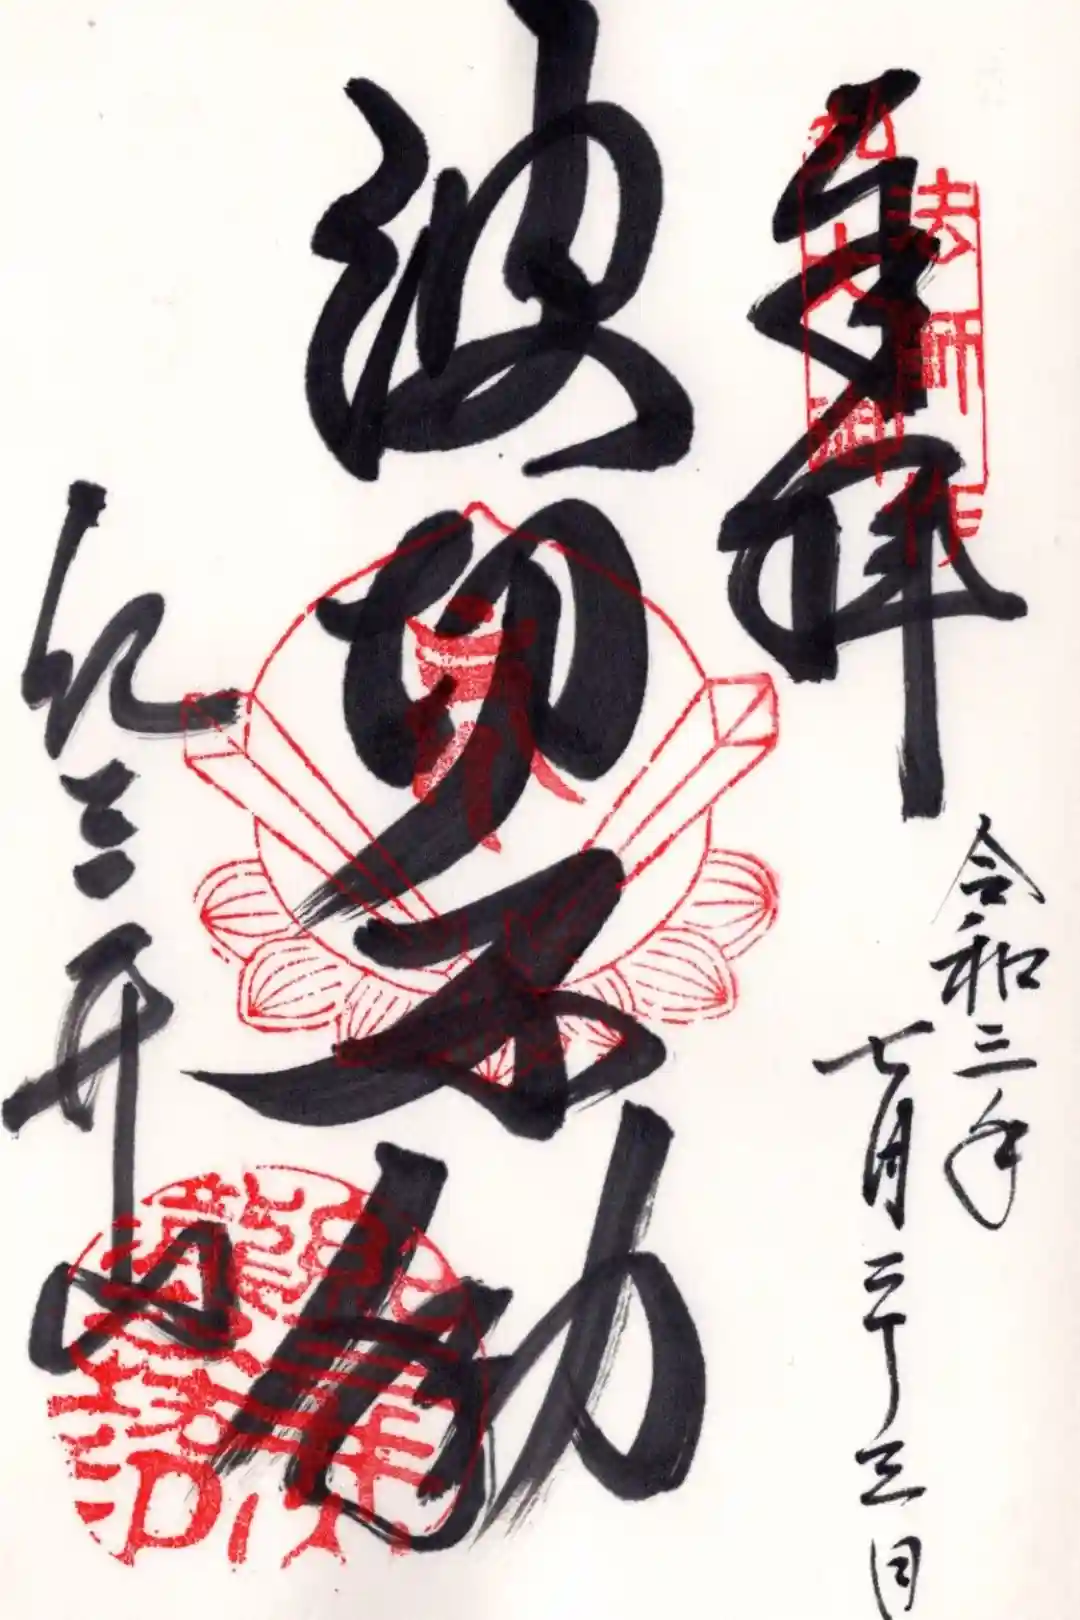 奉拝
弘法大師御作
令和三年
七月二十三日
波切不動
紀三井山